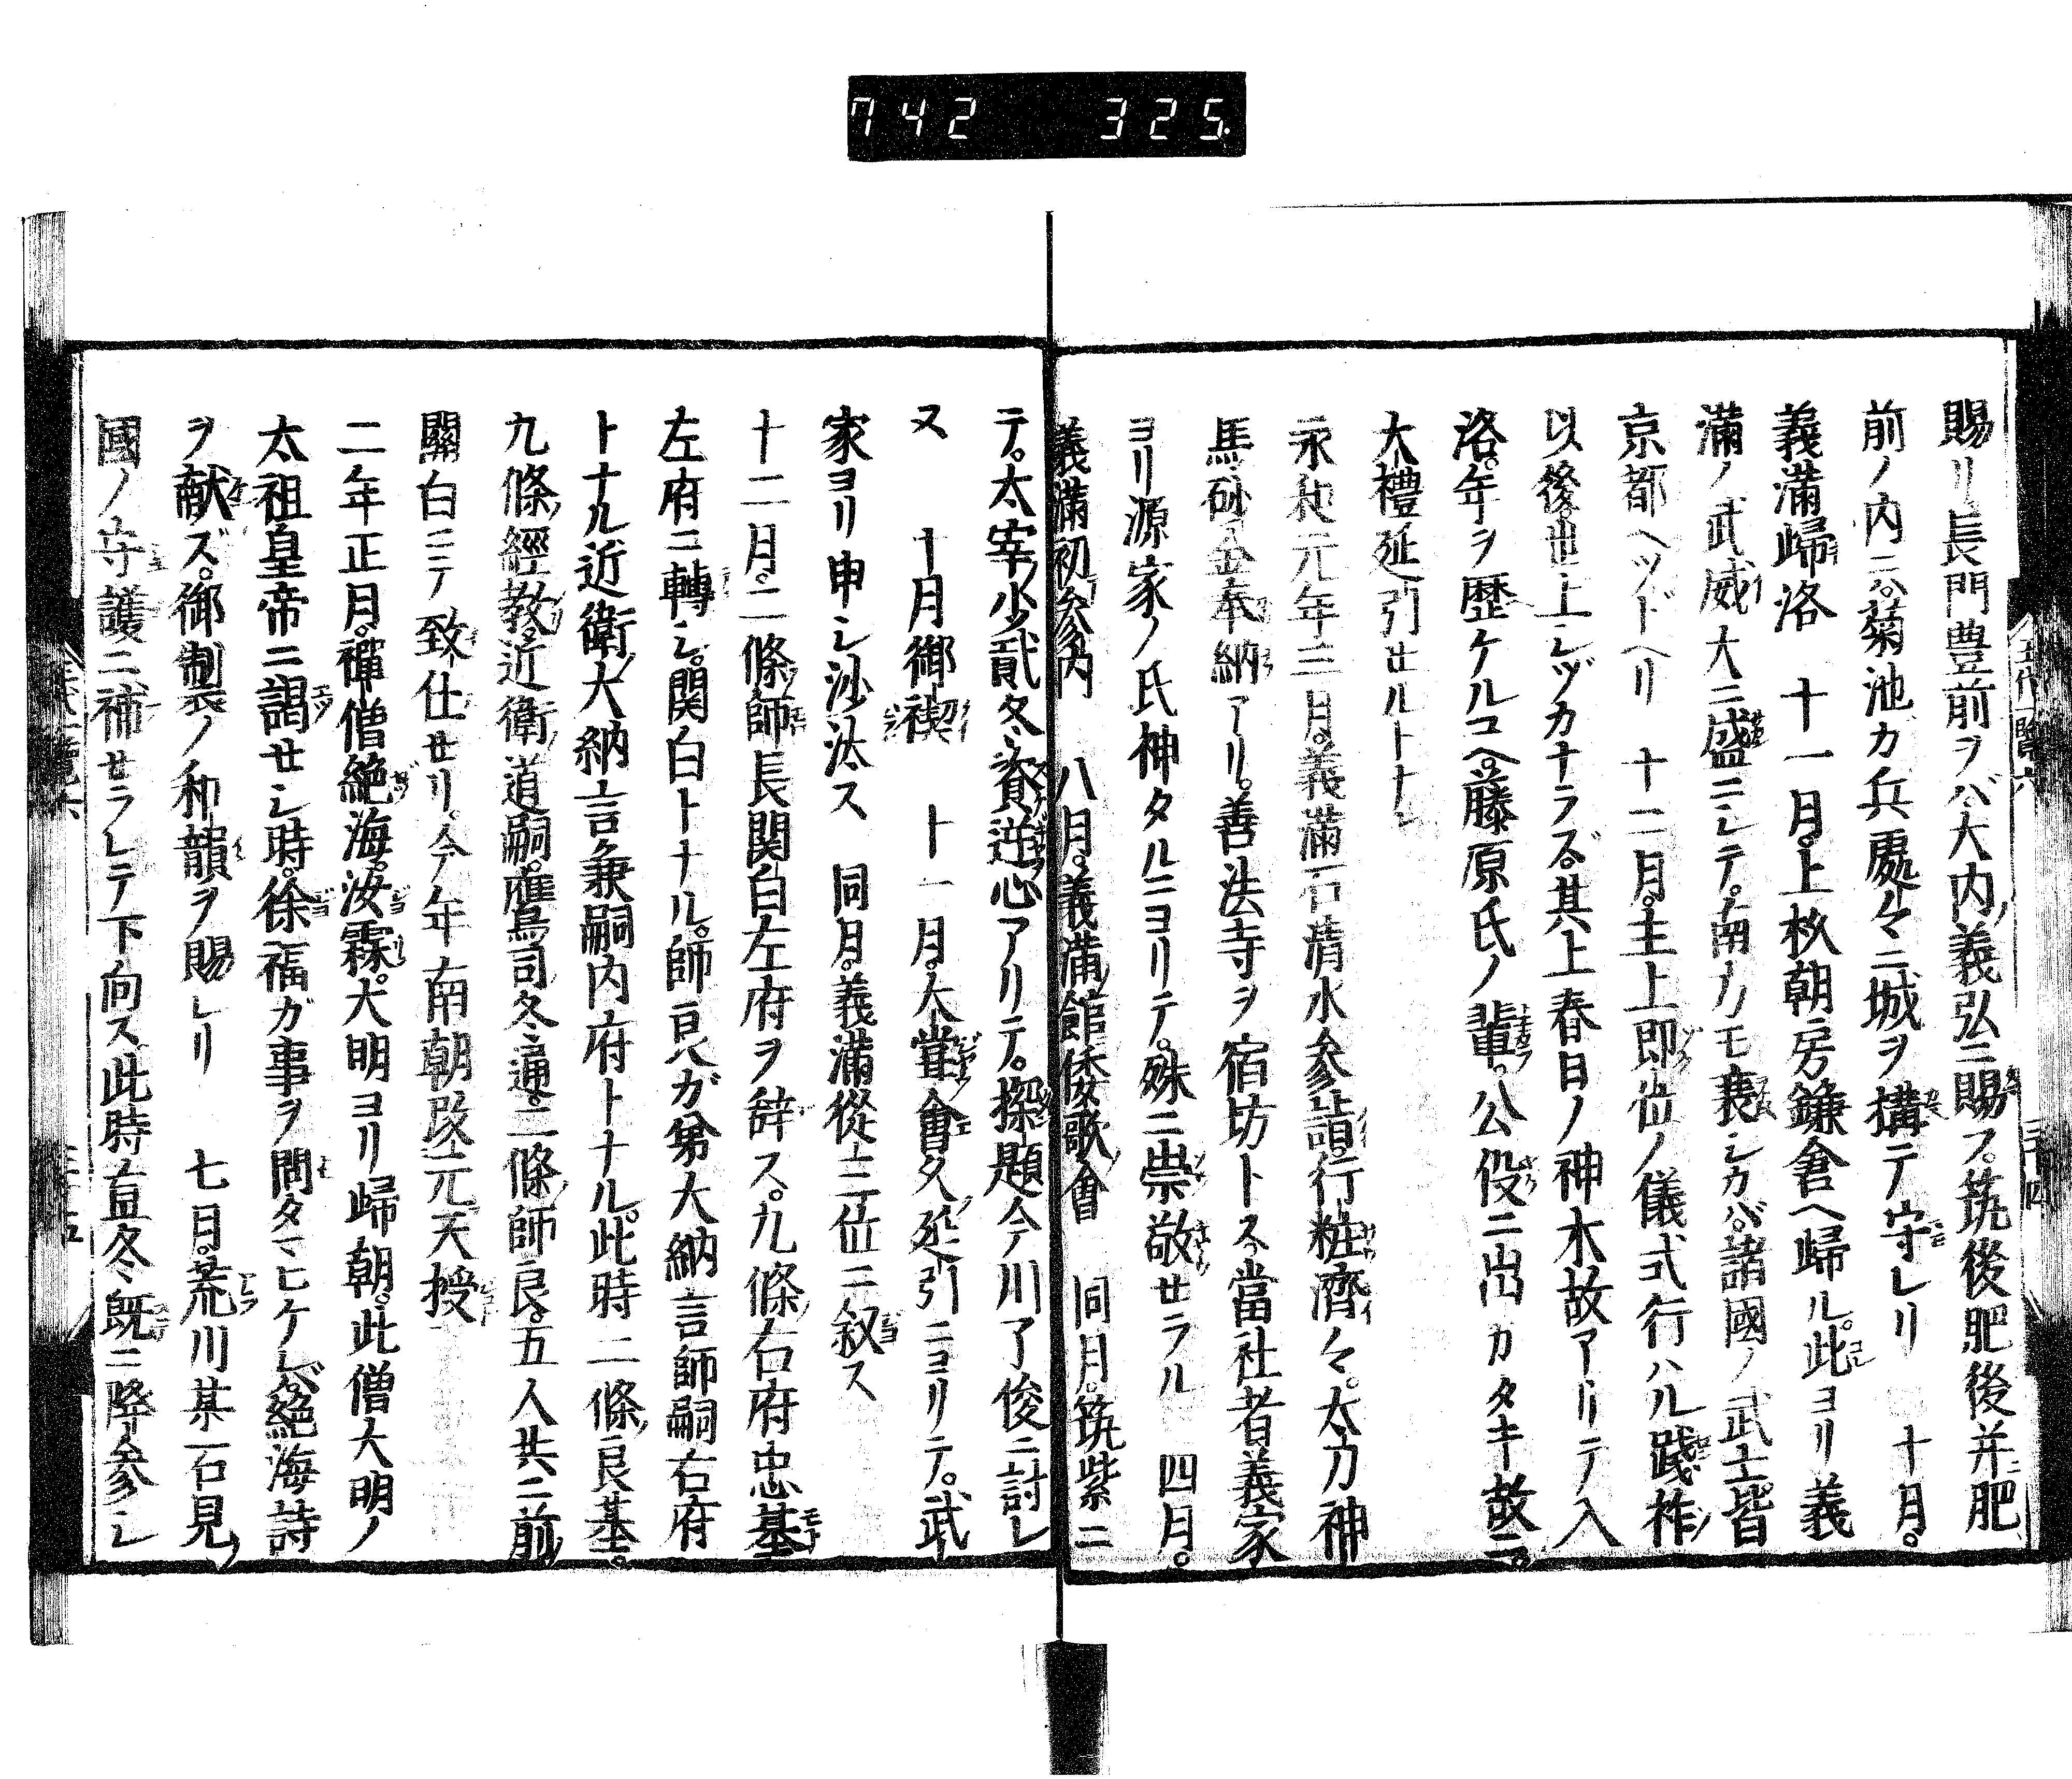 742 325
賜リ長門豊前ヲバ大内義弘ニ賜フ。筑後肥後并肥
前ノ内ニハ菊池カ兵處々ニ城ヲ構テ守レリ 十月。
義満歸洛 十一月。上杦朝房鎌倉ヘ歸ル。此ヨリ義
満ノ武威大ニ盛ニシテ。南方モ衰シカバ。諸國ノ武士皆
京都ヘツドヘリ 十二月。主上即位ノ儀式行ハル踐祚
以後。世上シヅカナラズ。其上春日ノ神木故アリテ入
洛。年ヲ歴ケルコヘ。藤原氏ノ輩。公役ニ出カタキ故ニ。
大禮延引セルトナン
永和元年三月。義満石清水参詣。行粧濟々。太刀神
馬砂金奉納アリ。善法寺ヲ宿坊トス。當社者義家
ヨリ源家ノ氏神タルニヨリテ。殊ニ崇敬セラル 四月。
義満初参内 八月。義満館倭歌會 同月。筑紫ニ
テ。太宰少貳冬資逆心アリテ。探題今川了俊ニ討レ
又 十月御禊 十一月。大嘗會久延引ニヨリテ。武
家ヨリ申シ沙汰ス 同月。義満從三位ニ叙ス
十二月。二條師長関白左府ヲ辞ス。九條右府忠基
左府ニ轉シ。関白トナル。師良ガ弟大納言師嗣右府
トナル近衛大納言兼嗣内府トナル。此時二條良基。
九條經教。近衛道嗣。鷹司冬通。二條師良。五人共ニ前
關白ニテ致仕セリ。今年南朝改元天授
二年正月。禪僧絶海。汝霖。大明ヨリ歸朝。此僧大明ノ
太祖皇帝ニ謁セシ時。徐福ガ事ヲ問タマヒケレバ絶海詩
ヲ献ズ。御製ノ和韻ヲ賜レリ 七月。荒川某石見
國ノ守護ニ補セラレテ下向ス。此時直冬既ニ降参シ